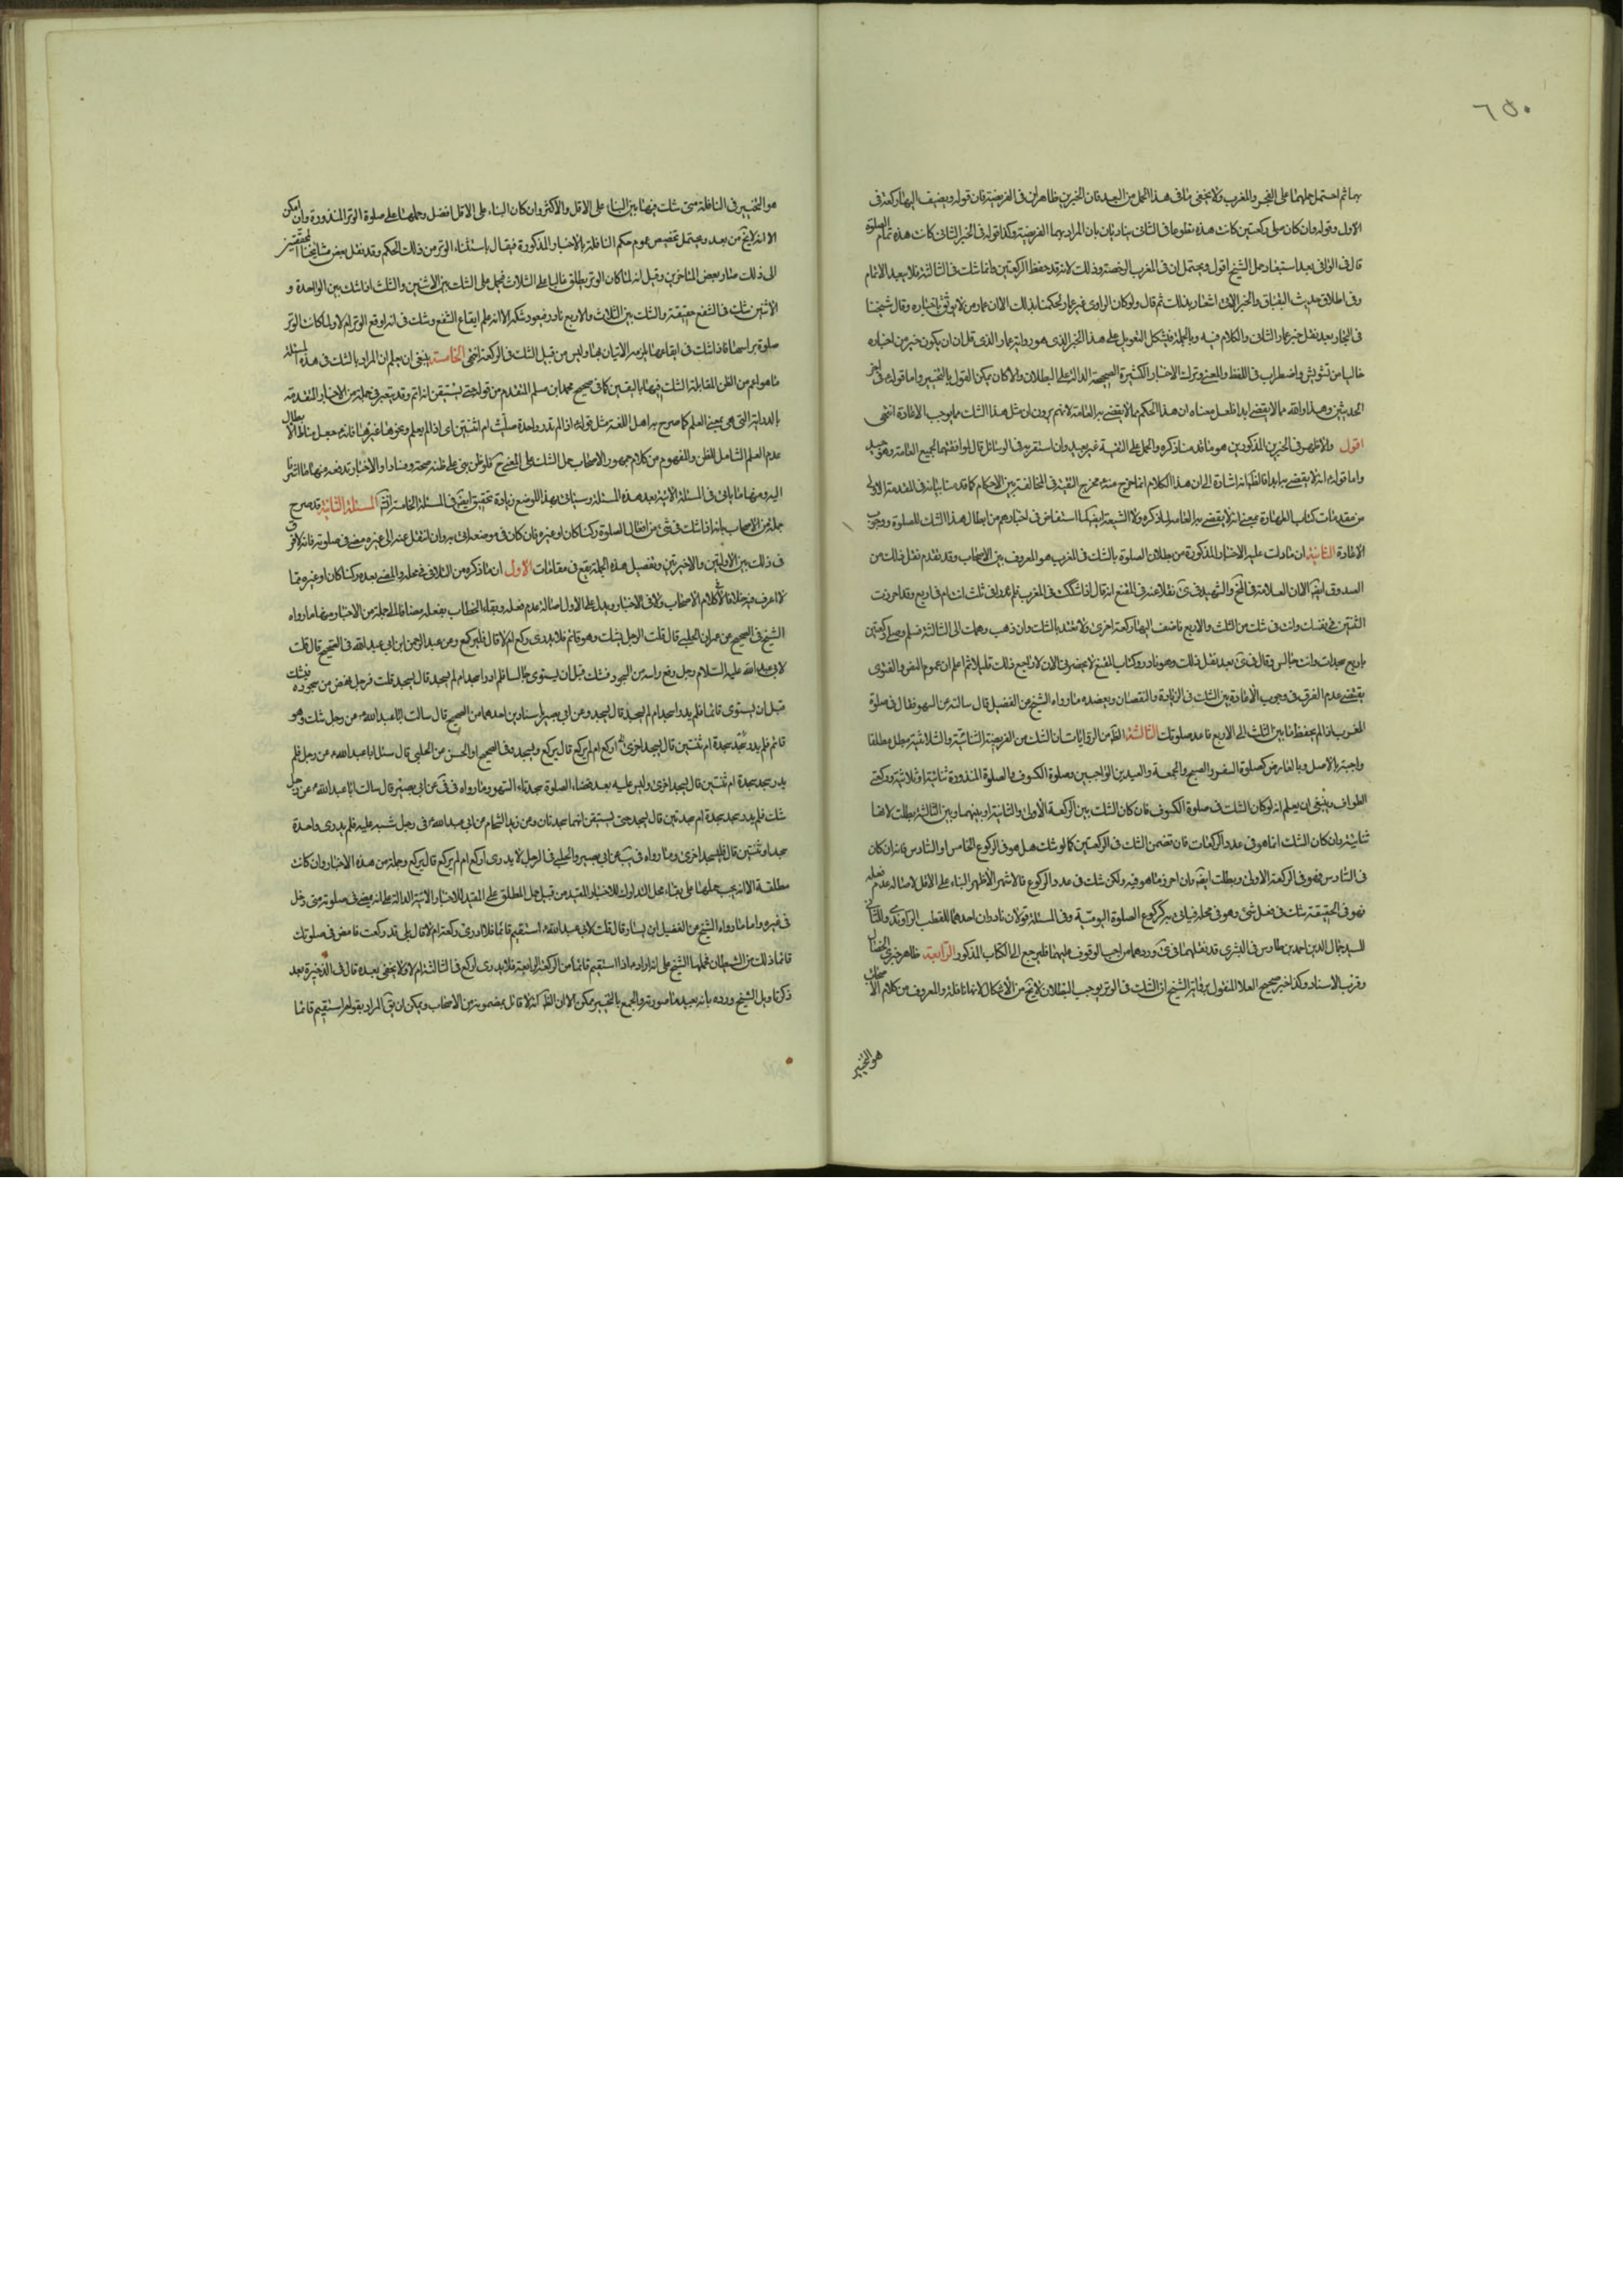 ٦٥٠
بهما ثم احتمل حملهما على الفجر والمغرب ولا يخفى ما فى هذا الحمل من البعد فان الخبرين ظاهران فى الفريضة فان قوله ويضيف اليها ركعة فى
الاول وقوله وان كان صلى ركعتين كانت هذه تطوعا فى الثانى يناديان بان المراد بهما الفريضة وكذا قوله فى الخبر الثانى كانت هذه تمام الصلوة
قال فى الوافى بعد استبعاد حمل الشيخ اقول ويحتمل ان فى المغرب الرخصة وذلك لانه قد حفظ الركعتين وانما شك فى الثالثة فلا يبعد الاتمام
وفى اطلاق حديث البقباق والخبر الاتى اشعار بذلك ثم قال ولو كان الراوى غير عمار لحكمنا بذلك الا ان عمار ممن لا يوثق باخباره وقال شيخنا
فى البحار بعد نقل خبر عمار الثانى والكلام فيه وبالجملة فيشكل التعويل على هذا الخبر الذى هو رواية عمار الذى قل ان يكون خبر من اخباره
خاليا من تشويش واضطراب فى اللفظ والمعنى وترك الاخبار الكثيرة الصحيحة الدالة على البطلان ولولا كان يمكن القول بالتخيير واما قوله فى اخر
الحديثين وهذا والله مما لا يقضى ابدا فلعل معناه ان هذا الحكم مما لا يقضى به العامة لانهم يرون ان مثل هذا الشك مما يوجب الاعادة انتهى
اقول والاظهر فى الخبرين المذكورين هو ما قدمنا ذكره والحمل على التقية غير بعيد وان استقربه فى الوسائل قال لموافقتهما لجميع العامة وهو جيد
واما قوله انه لا يقضى به ابدا فالظ انه اشارة الى ان هذا الكلام انما خرج منه مخرج التقية فى المخالفة بين الاحكام كما قدمنا بيانه فى المقدمة الاولى
من مقدمات كتاب الطهارة بمعنى انه لا يقضى به العامة لما ذكره ولا الشيعة ايضا لما استفاض فى اخبارهم من ابطال هذا الشك للصلوة ووجوب
الاعادة الثانية ان ما دلت عليه الاخبار المذكورة من بطلان الصلوة بالشك فى المغرب هو المعروف بين الاصحاب وقد تقدم نقل ذلك من
الصدوق ايضا الا ان العلامة فى المخ والشهيد فى ى نقلا عنه فى المقنع انه قال اذا شككت فى المغرب فلم تدر افى ثلث انت ام فى اربع وقد احرزت
الثنتين فى نفسك وانت فى شك من الثلث والاربع فاضف اليها ركعة اخرى ولا تعتد بالشك وان ذهب وهمك الى الثالثة فسلم وصل ركعتين
باربع سجدات وانت جالس وقال فى ى بعد نقل ذلك وهو نادر وكتاب المقنع لا يحضرنى الان لاراجع ذلك قليلا ثم اعلم ان عموم النص والفتوى
يقتضى عدم الفرق فى وجوب الاعادة بين الشك فى الزيادة والنقصان ويعضده ما رواه الشيخ عن الفضيل قال سالته عن السهو فقال فى صلوة
المغرب اذا لم يحفظ ما بين الثلث الى الاربع فاعد صلوتك الثالثة الظ من الروايات ان الشك من الفريضة الثنائية والثلاثية مبطل مطلقا
واجبة بالاصل وبالعارض كصلوة السفر والصبح والجمعة والعيدين الواجبين وصلوة الكسوف والصلوة المنذورة ثنائية او ثلاثية وركعتى
الطواف وينبغى ان يعلم انه لو كان الشك فى صلوة الكسوف فان كان الشك بين الركعة الاولى والثانية او بينهما وبين الثالثة بطلت لانها
ثنائية وان كان الشك انما هو فى عدد الركعات فان تضمن الشك فى الركعتين كما لو شك هل هو فى الركوع الخامس او السادس فانه ان كان
فى السادس فهو فى الركعة الاولى وبطلت ايضا وان احرز ما هو فيه ولكن شك فى عدد الركوع فالاشهر الاظهر البناء على الاقل لاصالة عدم فعله
فهو فى الحقيقة شك فى فعل شئ وهو فى محله فياتى به كركوع الصلوة اليومية وفى المسئلة قولان نادران احدهما للقطب الراوندى والثانى
للسيد جمال الدين احمد بن طاوس فى البشرى قد نقلهما فى ى وردهما من احب الوقوف عليهما فليرجع الى الكتاب المذكور الرابعة ظاهر خبرى الخصال
وقرب الاسناد وكذا خبر صحيح العلا المنقول برواية الشيخ ان الشك فى الوتر يوجب البطلان لا يخ من الاشكال لانها نافلة والمعروف من كلام الاصحاب
هو التخيير
هو التخيير فى النافلة متى شك فيها بين البناء على الاقل والاكثر وان كان البناء على الاقل افضل وحملها على صلوة الوتر المنذورة وان امكن
الا انه لا يخ من بعد ويحتمل تخصيص عموم حكم النافلة بالاخبار المذكورة فيقال باستثناء الوتر من ذلك الحكم وقد نقل بعض مشايخنا المحققين
الى ذلك بعض المتاخرين وقيل انه لما كان الوتر يطلق غالبا على الثلاث فيحمل على الشك بين الاثنين والثلث اذ الشك بين الواحدة و
الاثنين شك فى الشفع حقيقة والشك بين الثلاث والاربع نادر فيعود شكه الا انه علم ايقاع الشفع وشك فى انه اوقع الوتر ام لا ولما كانت الوتر
صلوة براسها فاذا شك فى ايقاعها يلزمه الاتيان بها وليس من قبيل الشك فى الركعة انتهى الخامسة ينبغى ان يعلم ان المراد بالشك فى هذه المسئلة
ما هو اعم من الظن لمقابلة الشك فيها باليقين كما فى صحيح محمد بن مسلم المتقدم من قوله حتى يستيقن انه اتم وقد يعبر فى جملة من الاخبار المتقدمة
بالدراية التى هى بمعنى العلم كما صرح به اهل اللغة مثل قوله اذا لم تدر واحدة صليت ام اثنتين اى اذا لم يعلم ونحوها غيرها فانه جعل مناط الابطال
عدم العلم الشامل للظن والمفهوم من كلام جمهور الاصحاب حمل الشك على المعنى
اليه ومنها ما ياتى فى المسئلة الاتية بعد هذه المسئلة وسياتى بهذا الموضع زيادة تحقيق ايضا فى المسئلة الخامسة انش المسئلة الثانية قد صرح
جملة من الاصحاب بانه اذا شك فى شئ من افعال الصلوة ركنا كان او غيره فان كان فى موضعه اتى به وان انتقل عنه الى غيره مضى فى صلوته فانه لا فرق
فى ذلك بين الاوليين والاخيرتين وتفصيل هذه الجملة يقع فى مقامات الاول ان ما ذكره من التلافى فى محله والمضى بعده ركنا كان او غيره مما
لا اعرف فيه خلافا فى كلام الاصحاب ولا فى الاخبار ويدل على الاول اصالة عدم فعله وبقاء الخطاب بفعله مضافا الى جملة من الاخبار منها ما رواه
الشيخ فى الصحيح عن عمران الحلبى قال قلت الرجل يشك وهو قائم فلا يدرى ركع ام لا قال فليركع وعن عبد الرحمن ابن ابى عبد الله فى الصحيح قال قلت
لابى عبد الله عليه السلام رجل رفع راسه من السجود فشك قبل ان يستوى جالسا فلم يدر اسجد ام لم يسجد قال يسجد قلت فرجل نهض من سجوده فشك
قبل ان يستوى قائما فلم يدر اسجد ام لم يسجد قال يسجد وعن ابى بصير باسنادين احدهما من الصحيح قال سالت ابا عبد الله ع عن رجل شك وهو
قائم فلم يدر سجد سجدة ام ثنتين قال يسجد اخرى اركع ام لم يركع قال يركع ويسجد وفى الصحيح او الحسن عن الحلبى قال سئل ابا عبد الله ع عن رجل فلم
يدر سجد سجدة ام ثنتين قال يسجد اخرى وليس عليه بعد قضاء الصلوة سجدتا السهو وما رواه فى فى عن ابى بصير قال سالت ابا عبد الله ع عن رجل
شك فلم يدر سجد سجدة ام سجدتين قال يسجد حتى يستيقن انهما سجدتان وعن زيد الشحام عن ابى عبد الله ع فى رجل شبه عليه فلم يدرى واحدة
سجد او ثنتين قال فليسجد اخرى وما رواه فى يب عن ابى بصير والحلبى فى الرجل لا يدرى اركع ام لم يركع قال يركع وجملة من هذه الاخبار وان كانت
مطلقة الا انه يجب حملها على بقاء محل التدارك للاخبار المقيد من قبيل حمل المطلق على المقيد للاخبار الاتية الدالة على انه يمضى فى صلوته متى دخل
فى غيره واما ما رواه الشيخ عن الفضيل ابن يسار قال قلت لابى عبد الله ع استقيم قائما فلا ادرى ركعت ام لا قال بلى قد ركعت فامض فى صلوتك
فانما ذلك من الشيطان فحملها الشيخ على انه اراد به اذا استقيم قائما من الركعة الرابعة فلا يدرى اركع فى الثالثة ام لا ولا يخفى بعده قال فى الذخيرة بعد
ذكر تاويل الشيخ ورده بانه بعيد ما صورته والجمع بالتخيير ممكن الا ان الظ انه لا قائل بمضمونه من الاصحاب ويمكن ان يق المراد بقوله استقيم قائما